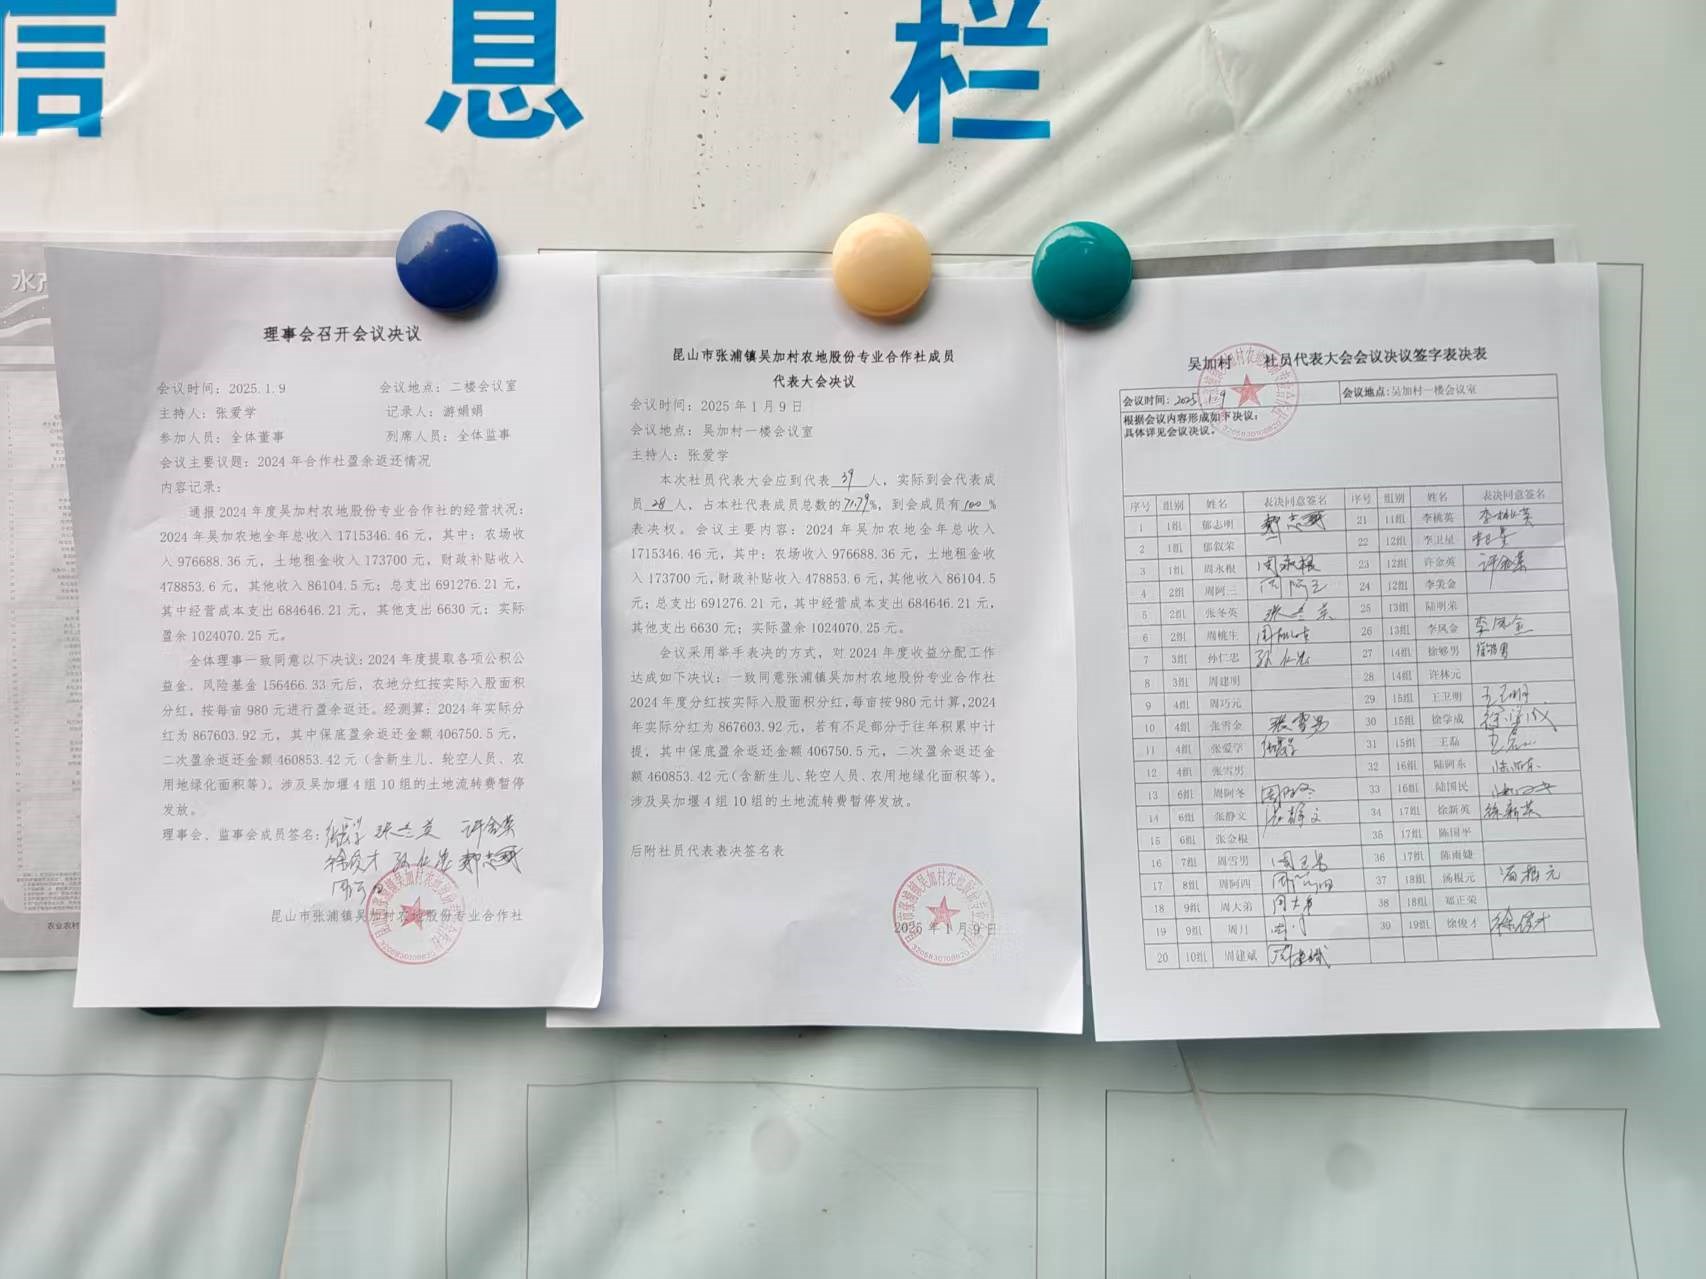 信息栏
水产
理事会召开会议决议
会议时间：2025.1.9 会议地点：二楼会议室
主持人：张爱学 记录人：游娟娟
参加人员：全体董事 列席人员：全体监事
会议主要议题：2024年合作社盈余返还情况
内容记录：
通报2024年度吴加村农地股份专业合作社的经营状况：
2024年吴加农地全年总收入1715346.46元，其中：农场收
入976688.36元，土地租金收入173700元，财政补贴收入
478853.6元，其他收入86104.5元；总支出691276.21元，
其中经营成本支出684646.21元，其他支出6630元；实际
盈余1024070.25元。
全体理事一致同意以下决议：2024年度提取各项公积公
益金、风险基金156466.33元后，农地分红按实际入股面积
分红，按每亩980元进行盈余返还。经测算：2024年实际分
红为867603.92元，其中保底盈余返还金额406750.5元，
二次盈余返还金额460853.42元（含新生儿、轮空人员、农
用地绿化面积等）。涉及吴加堰4组10组的土地流转费暂停
发放。
理事会、监事会成员签名：张爱学 张冬英 许金英
徐俊才 孙仁忠 郁志明
昆山市张浦镇吴加村农地股份专业合作社
昆山市张浦镇吴加村农地股份专业合作社成员
代表大会决议
会议时间：2025年1月9日
会议地点：吴加村一楼会议室
主持人：张爱学
本次社员代表大会应到代表39人，实际到会代表成
员28人，占本社代表成员总数的71.79%，到会成员有100%
表决权。会议主要内容：2024年吴加农地全年总收入
1715346.46元，其中：农场收入976688.36元，土地租金收
入173700元，财政补贴收入478853.6元，其他收入86104.5
元；总支出691276.21元，其中经营成本支出684646.21元，
其他支出6630元；实际盈余1024070.25元。
会议采用举手表决的方式，对2024年度收益分配工作
达成如下决议：一致同意张浦镇吴加村农地股份专业合作社
2024年度分红按实际入股面积分红，每亩按980元计算，2024
年实际分红为867603.92元，若有不足部分于往年积累中计
提，其中保底盈余返还金额406750.5元，二次盈余返还金
额460853.42元（含新生儿、轮空人员、农用地绿化面积等）。
涉及吴加堰4组10组的土地流转费暂停发放。
后附社员代表表决签名表
2025年1月9日
吴加村 社员代表大会会议决议签字表决表
会议时间：2025.1.9 会议地点：吴加村一楼会议室
根据会议内容形成如下决议：
具体详见会议决议。
序号 组别 姓名 表决同意签名 序号 组别 姓名 表决同意签名
1 1组 郁志明 郁志明 21 11组 李桃英 李桃英
2 1组 郁叙荣 22 12组 李卫星 李卫星
3 1组 周永根 周永根 23 12组 许金英 许金英
4 2组 周阿三 周阿三 24 12组 李美金
5 2组 张冬英 张冬英 25 13组 陆明荣
6 2组 周桃生 周桃生 26 13组 李凤金 李凤金
7 3组 孙仁忠 孙仁忠 27 14组 徐够男 徐够男
8 3组 周建明 28 14组 许林元
9 4组 周巧元 29 15组 王卫明 王卫明
10 4组 张雪金 30 15组 徐学成 徐学成
11 4组 张爱学 张爱学 31 15组 王磊 王磊
12 4组 张雪男 32 16组 陆阿东 陆阿东
13 6组 周阿冬 周阿冬 33 16组 陆国民
14 6组 张静文 张静文 34 17组 徐新英 徐新英
15 6组 张金根 35 17组 陈国平
16 7组 周雪男 36 17组 陈雨婕
17 8组 周阿四 周阿四 37 18组 汤根元 汤根元
18 9组 周大弟 周大弟 38 18组 郑正荣
19 9组 周月 周月 39 19组 徐俊才 徐俊才
20 10组 周建斌 周建斌